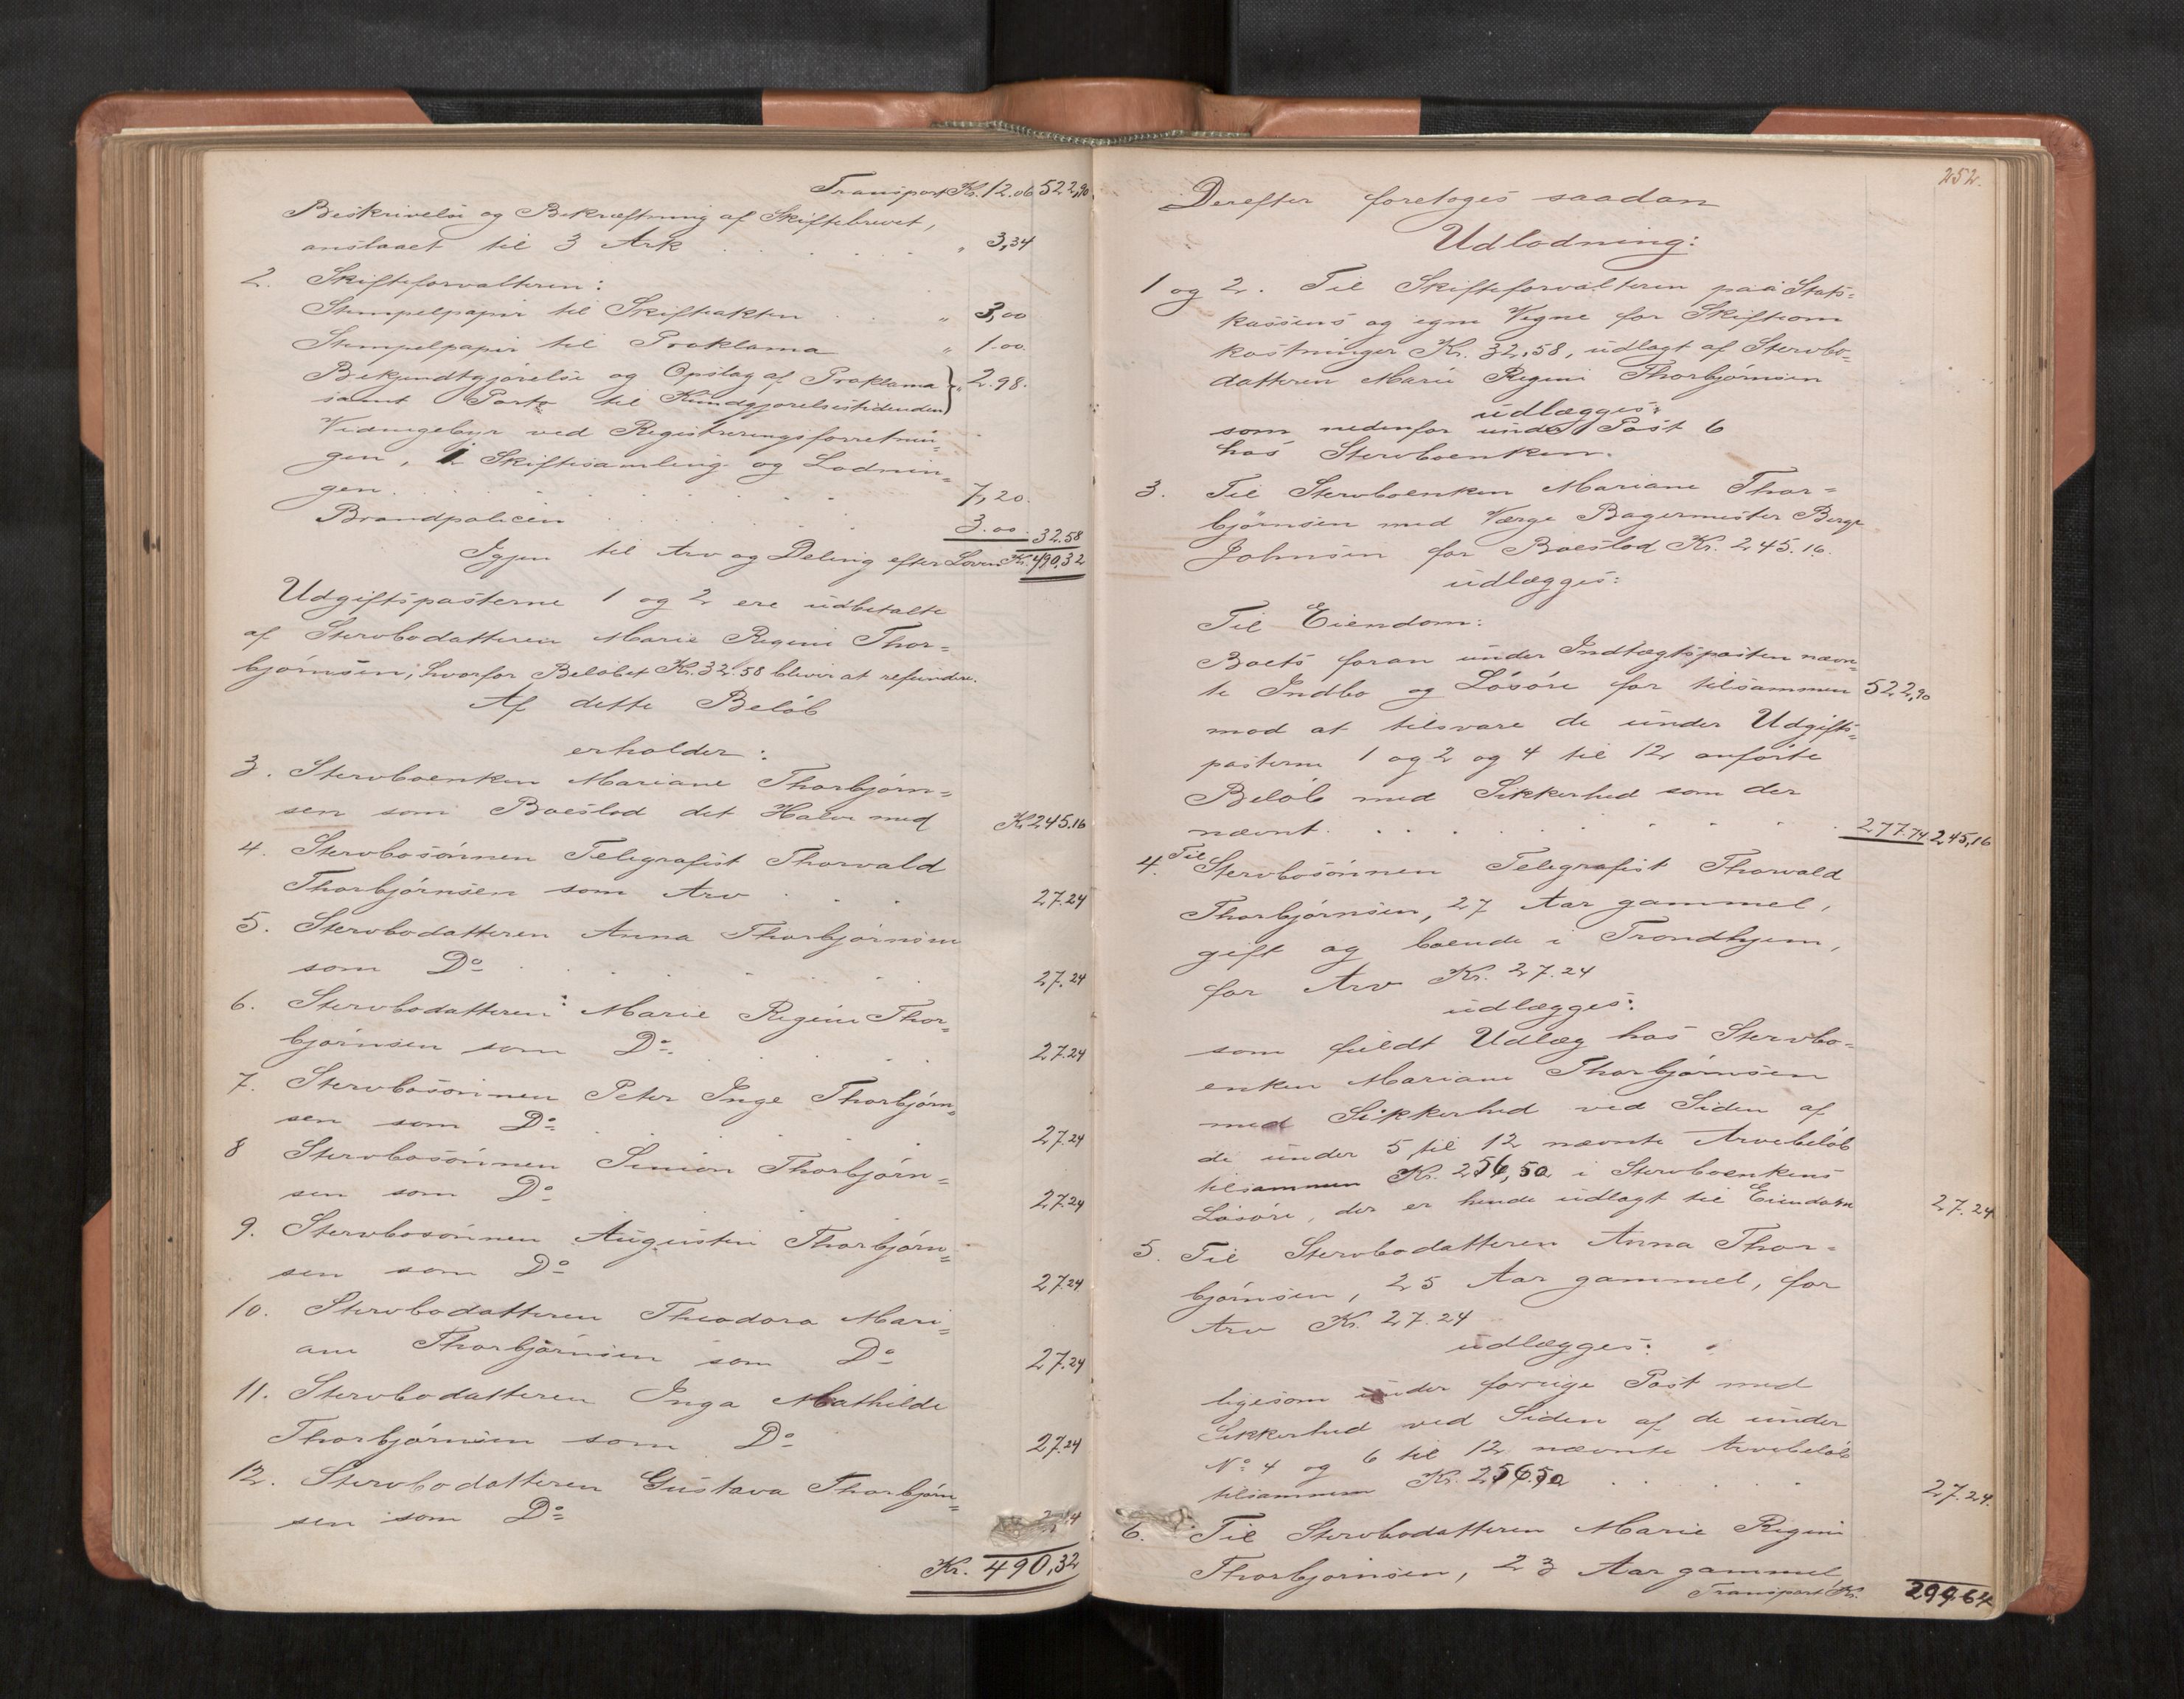 Transport Kr. 12.06 522,90
Beskrivelse og Bekræftning af Skiftebrevet,
anslaaet til 3 Ark . . . . . . " 3,34
2. Skifteforvalteren:
Stempelpapir til Skifteakten . . " 3,00
Stempelpapir til Proklama " 1.00.
Bekjendtgjørelse og Opslag af Proklama } " 2.98.
samt Porto til Kundgjørelsestidenden
Vidnegebyr ved Registreringsforretnin=
gen, 1 Skiftesamling og Lodnin=
gen . . . . . . . 7,20.
Brandpolicen . . . . . 3.00. 32.58
Igjen til Arv og Deling efter Loven Kr. 490,32
Udgiftsposterne 1 og 2 ere udbetalte
af Stervbodatteren Marie Regine Thor=
bjørnsen, hvorfor Beløbet Kr. 32.58 blever at refundere.
Af dette Beløb
erholder:
3. Stervboenken Mariane Thorbjørn=
sen som Boeslod det Halve med Kr 245.16
4. Stervbosønnen Telegrafist Thorvald
Thorbjørnsen som Arv . . . 27.24
5. Stervbodatteren Anna Thorbjørnsen
som Do . . . . . . 27.24
6. Stervbodatteren Marie Regine Thor=
bjørnsen som Do . . . . 27.24
7. Stervbosønnen Peter Inge Thorbjørn=
sen som Do . . . . 27.24
8 Stervbosønnen Simion Thorbjørn=
sen som Do . . . 27.24
9. Stervbosønnen Augustin Thorbjørn=
sen som Do 27.24
10. Stervbodatteren Theodora Mari=
ane Thorbjørnsen som Do 27.24
11. Stervbodatteren Inga Mathilde
Thorbjørnsen som Do 27.24
12. Stervbodatteren Gustava Thorbjørn=
sen som Do
Kr. 490,32
252.
Derefter foretoges saadan
Udlodning:
1 og 2. Til Skifteforvalteren paa Stats=
kassens og egne Vegne for Skifteom
kostninger Kr. 32,58, udlagt af Stervbo=
datteren Marie Regine Thorbjørnsen
udlægges:
som nedenfor under Post 6
hos Stervboenken.
3. Til Stervboenken Mariane Thor=
bjørnsen med Værge Bagermester Berge
Johnsen for Boeslod Kr. 245.16.
udlægges:
Til Eiendom:
Boets foran under Indtægtsposten nævn=
te Indbo og Løsøre for tilsammen 522,90
mod at tilsvare de under Udgifts=
posterne 1 og 2 og 4 til 12 anførte
Beløb med Sikkerhed som der
nævnt . . . . . . . . 277.74 245,16
4. Til Stervbosønnen Telegrafist Thorvald
Thorbjørnsen, 27 Aar gammel,
gift og boende i Trondhjem,
for Arv Kr. 27.24
udlægges:
som fuldt Udlæg hos Stervbo=
enken Mariane Thorbjørnsen
med Sikkerhed ved Siden af
de under 5 til 12 nævnte Arvebeløb
tilsammen Kr. 256,50 i Stervboenkens
Løsøre, der er hende udlagt til Eiendom 27.24
5. Til Stervbodatteren Anna Thor=
bjørnsen, 25 Aar gammel, for
Arv Kr. 27.24
udlægges:
ligesom under forrige Post med
Sikkerhed ved Siden af de under
No 4 og 6 til 12 nævnte Arvebeløb
tilsammen Kr. 256.50 . . . 27.24.
6. Til Stervbodatteren Marie Regine
Thorbjørnsen, 23 Aar gammel
Transport Kr. 299.64